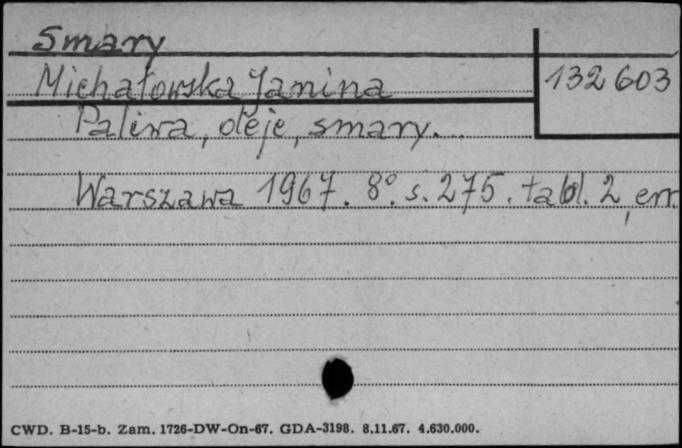 Smary
Michałowska Janina
132 603
Paliwa, oleje, smary...
Warszawa 1967. 8° s. 275. tabl. 2, err.
CWD. B-15-b. Zam. 1726-DW-On-67. GDA-3198. 8.11.67. 4.630.000.